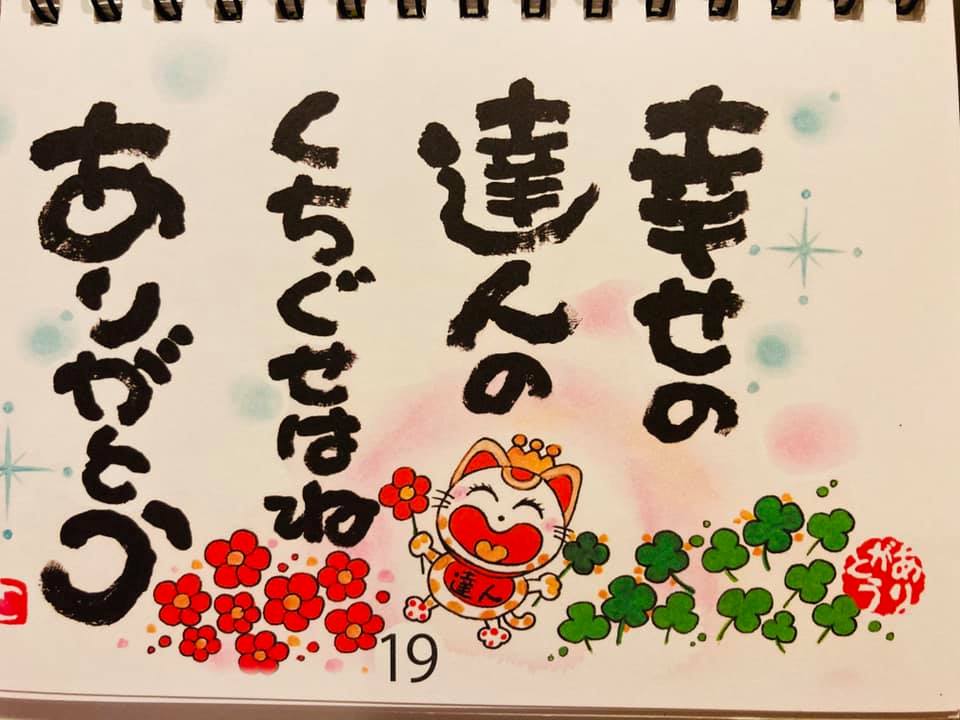 幸せの
達人の
くちぐせはね
ありがとう
達人
19
ありがとう